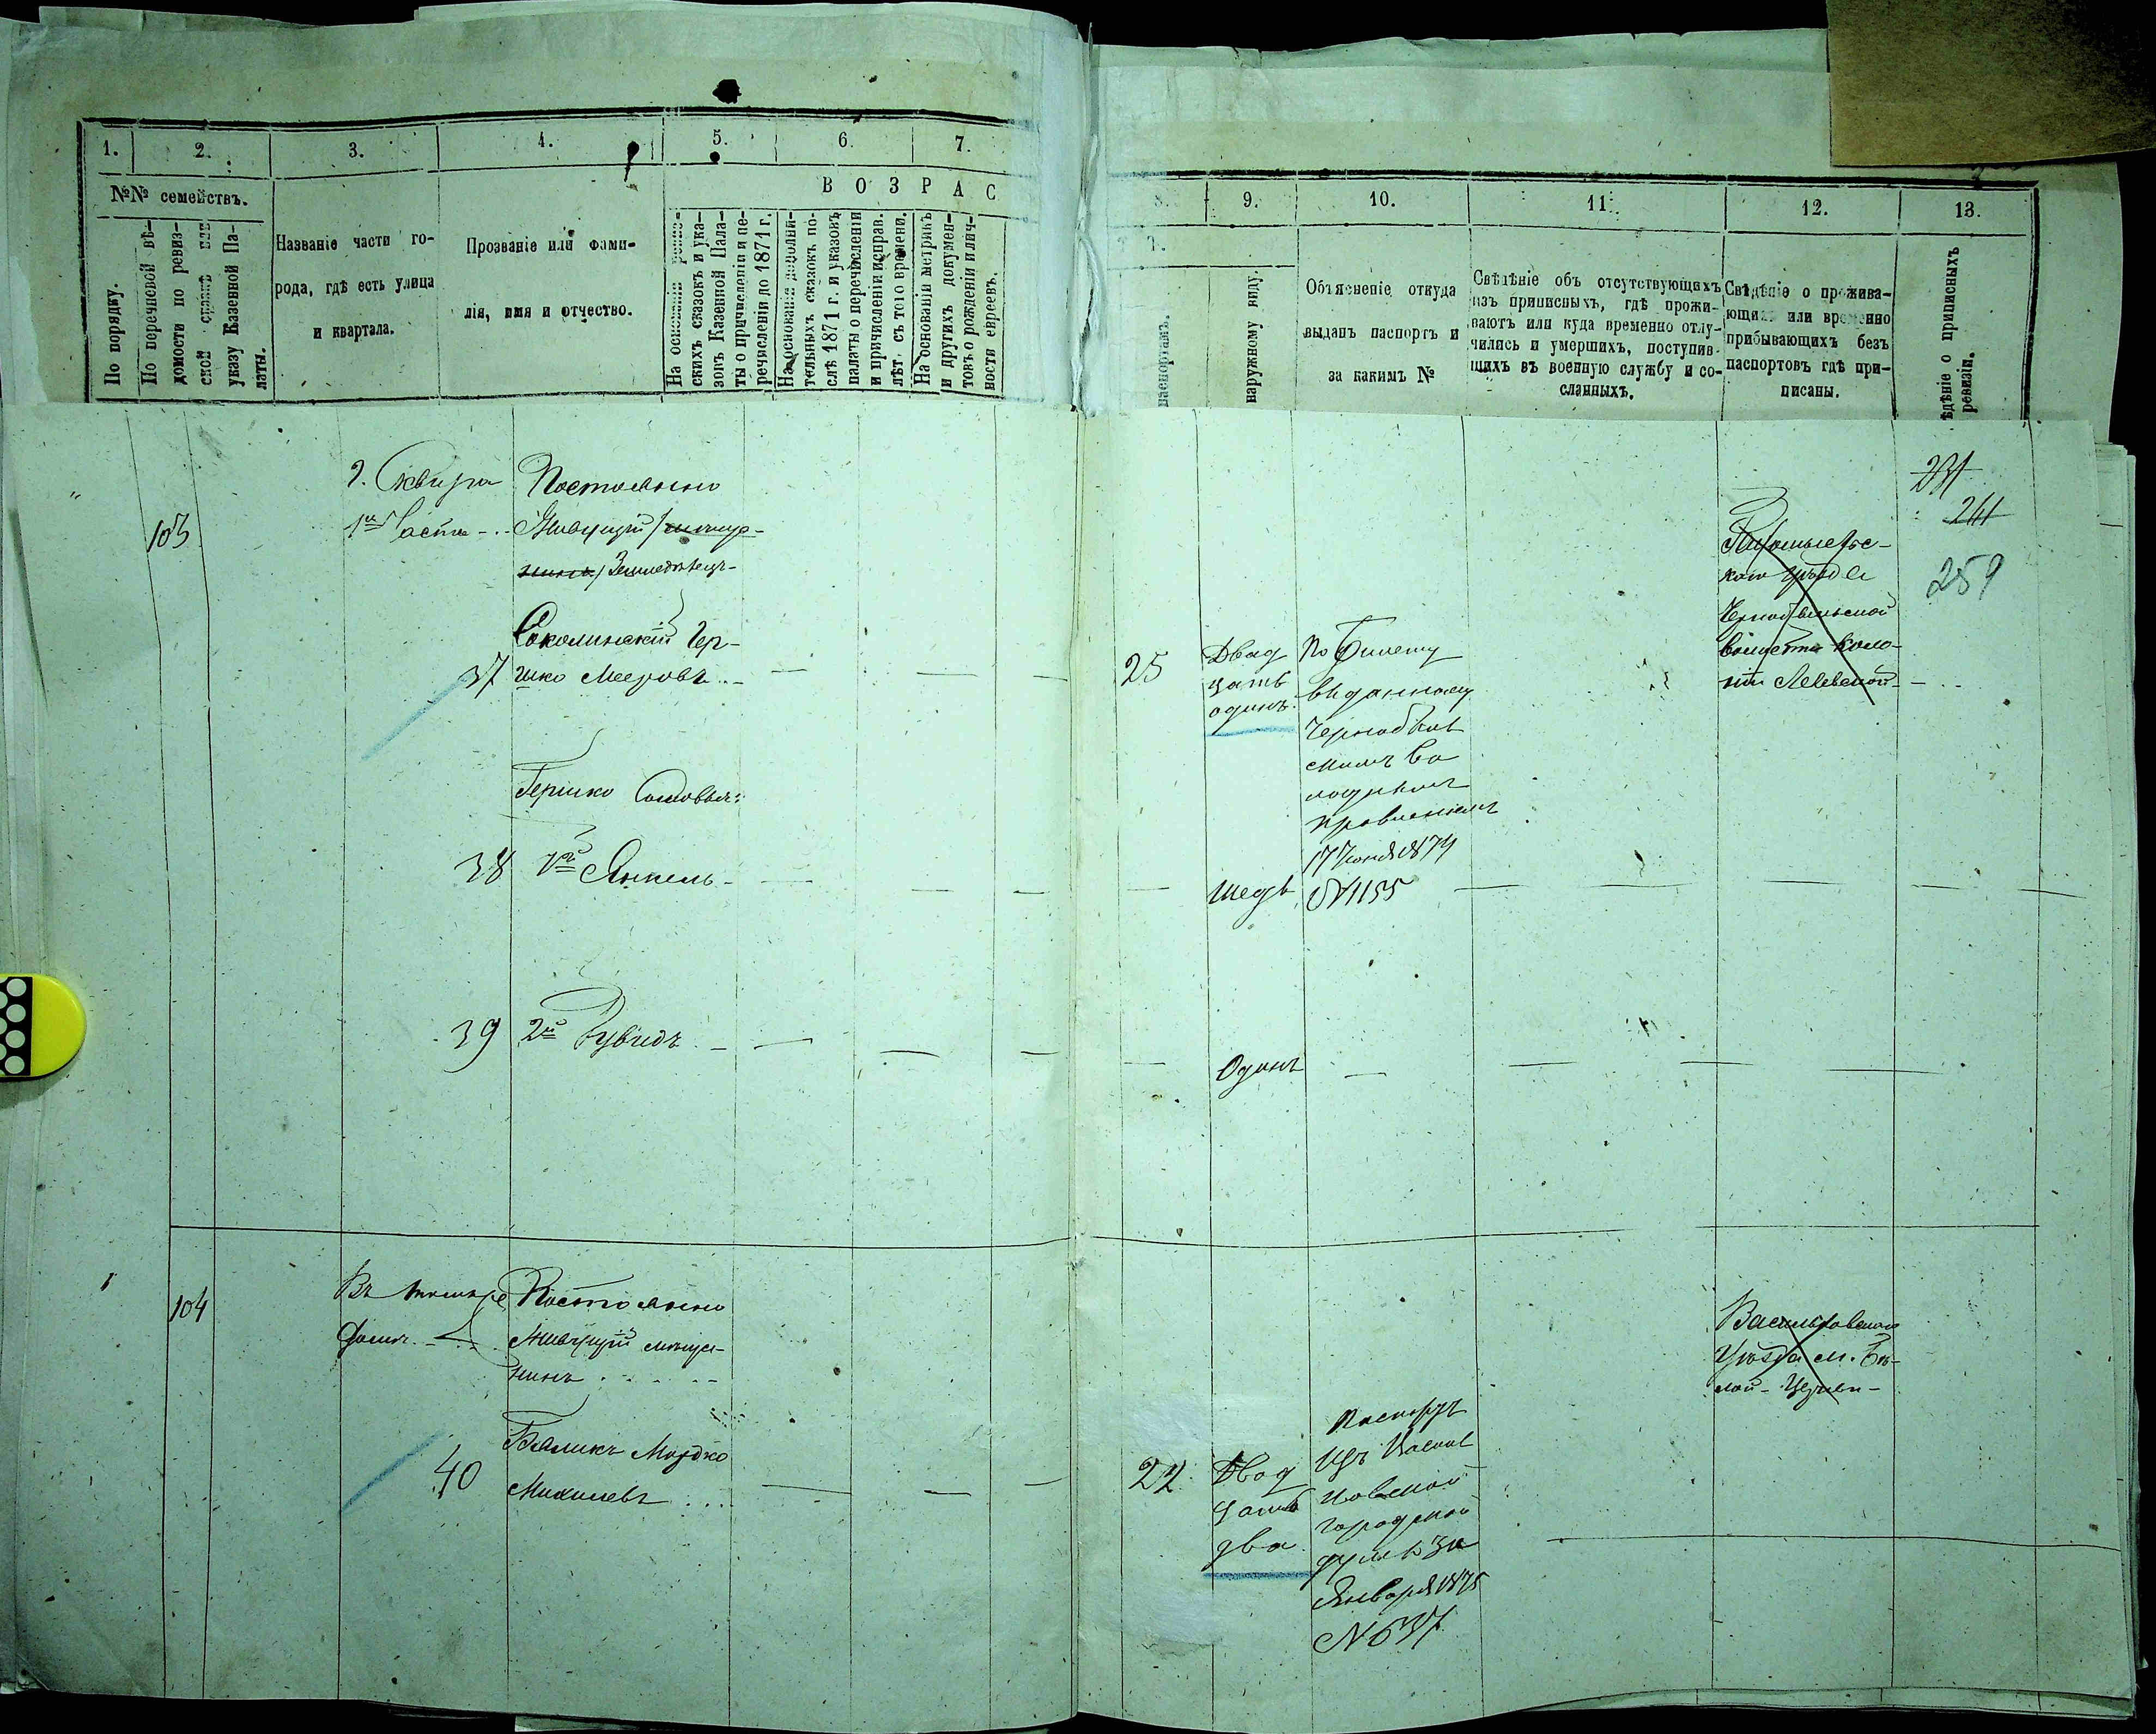 1. 2. 3. 4. 5. 6. 7.
№№ семействъ.
В О З Р А С
По порядку.
По перечневой вѣ-
домости по ревиз-
ской сказкѣ или
указу Казенной Па-
латы.
Названіе части го-
рода, гдѣ есть улица
и квартала.
Прозваніе или фами-
лія, имя и отчество.
На основаніи ревиз-
скихъ сказокъ и ука-
зовъ Казенной Пала-
ты о причисленіи и пе-
речисленіи до 1871 г.
На основаніи дополни-
тельныхъ сказокъ по-
слѣ 1871 г. и указовъ
палаты о перечисленіи
и причисленіи исправ.
лѣт. съ того времени.
На основаніи метрикъ
и другихъ докумен-
товъ о рожденіи и лич-
ности евреевъ.
8. 9. 10. 11. 12. 13.
Т.
паспортамъ.
наружному виду.
Объясненіе откуда
выданъ паспортъ и
за какимъ №
Свѣдѣніе объ отсутствующихъ
изъ приписныхъ, гдѣ прожи-
ваютъ или куда временно отлу-
чились и умершихъ, поступив-
шихъ въ военную службу и со-
сланныхъ.
Свѣдѣніе о прожива-
ющихъ или временно
прибывающихъ безъ
паспортовъ гдѣ при-
писаны.
ѣдѣніе о приписныхъ
ревизіи.
103
г. Сквира
1я Часть
Постоянно
Живущій /
/ Земледѣлецъ
Соколинскій Гер-
37 шко Мееровъ
Гершко Сыновья:
38 1й Янкель
39 2й Рувидъ
25
Двад
цать
одинъ
По билету
выданному
Чернобыль
скимъ Во
лостнымъ
правленіемъ
17 Іюня 1874
№ 1155
Шесть
Одинъ
кого уѣзда
Чернобыльской
волости коло-
ніи
231
241
259
104
Въ
домѣ
Постоянно
Живущій мѣща-
нинъ
Балихъ Мордко
40 Михилевъ
22
Двад
цать
два
Паспортъ
изъ Василь
ковской
городской
думы за
Января 1875
№ 637
Васильковскаго
Уѣзда м. Бѣ-
лой-Церкви